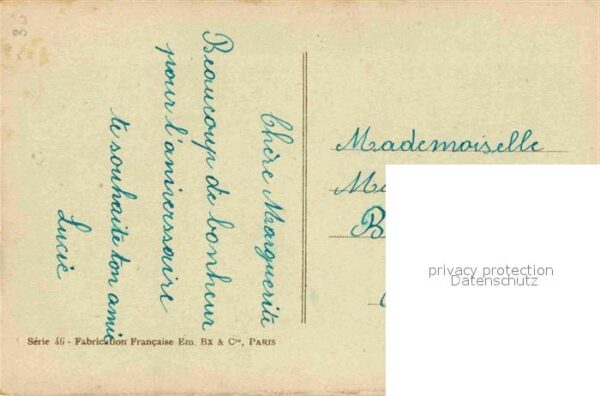 Chère Marguerite
Beaucoup de bonheur
pour l'aniverssaire
te souhaite ton amie
Lucie
Mademoiselle
Série 46 - Fabrication Française Em. BX & Cie, PARIS
privacy protection
Datenschutz